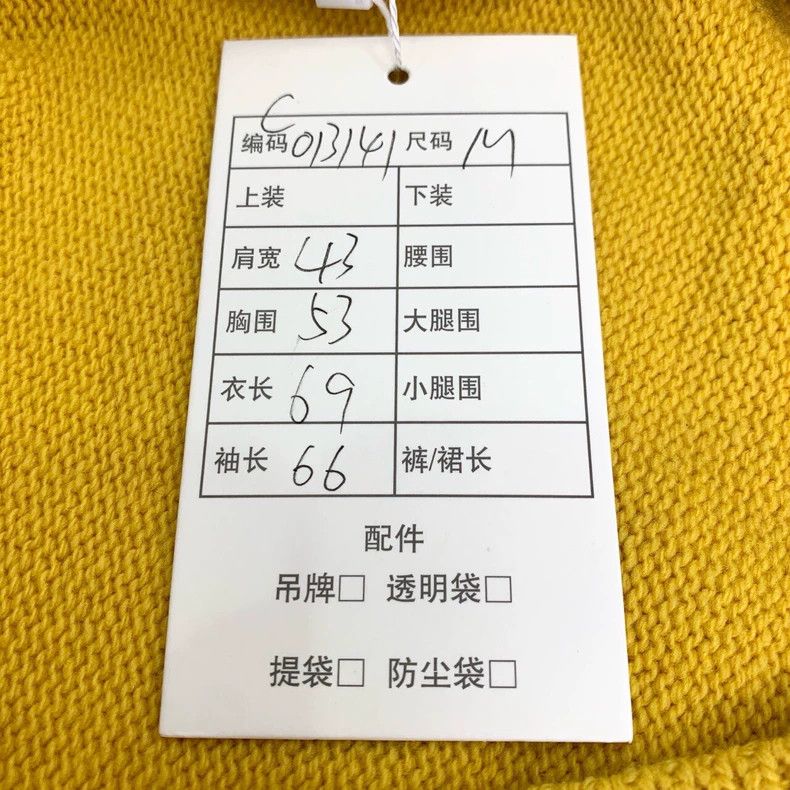 编码 C013141 尺码 M
上装 下装
肩宽 43 腰围
胸围 53 大腿围
衣长 69 小腿围
袖长 66 裤/裙长
配件
吊牌□ 透明袋□
提袋□ 防尘袋□